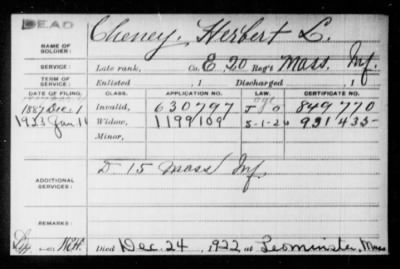 DEAD
NAME OF SOLDIER: Cheney, Herbert L.
SERVICE: Late rank, Co. E, 20 Reg't Mass. Inf.
TERM OF SERVICE: Enlisted , 1 Discharged , 1
DATE OF FILING. CLASS. APPLICATION NO. LAW. CERTIFICATE NO.
1887 Dec. Invalid, 630797 849770
1923 Jan 11 Widow, 1199109 5-1-20 931435
Minor,
ADDITIONAL SERVICES: D. 15 Mass Inf.
REMARKS:
Died Dec. 24, 1922 at Leominster, Mass